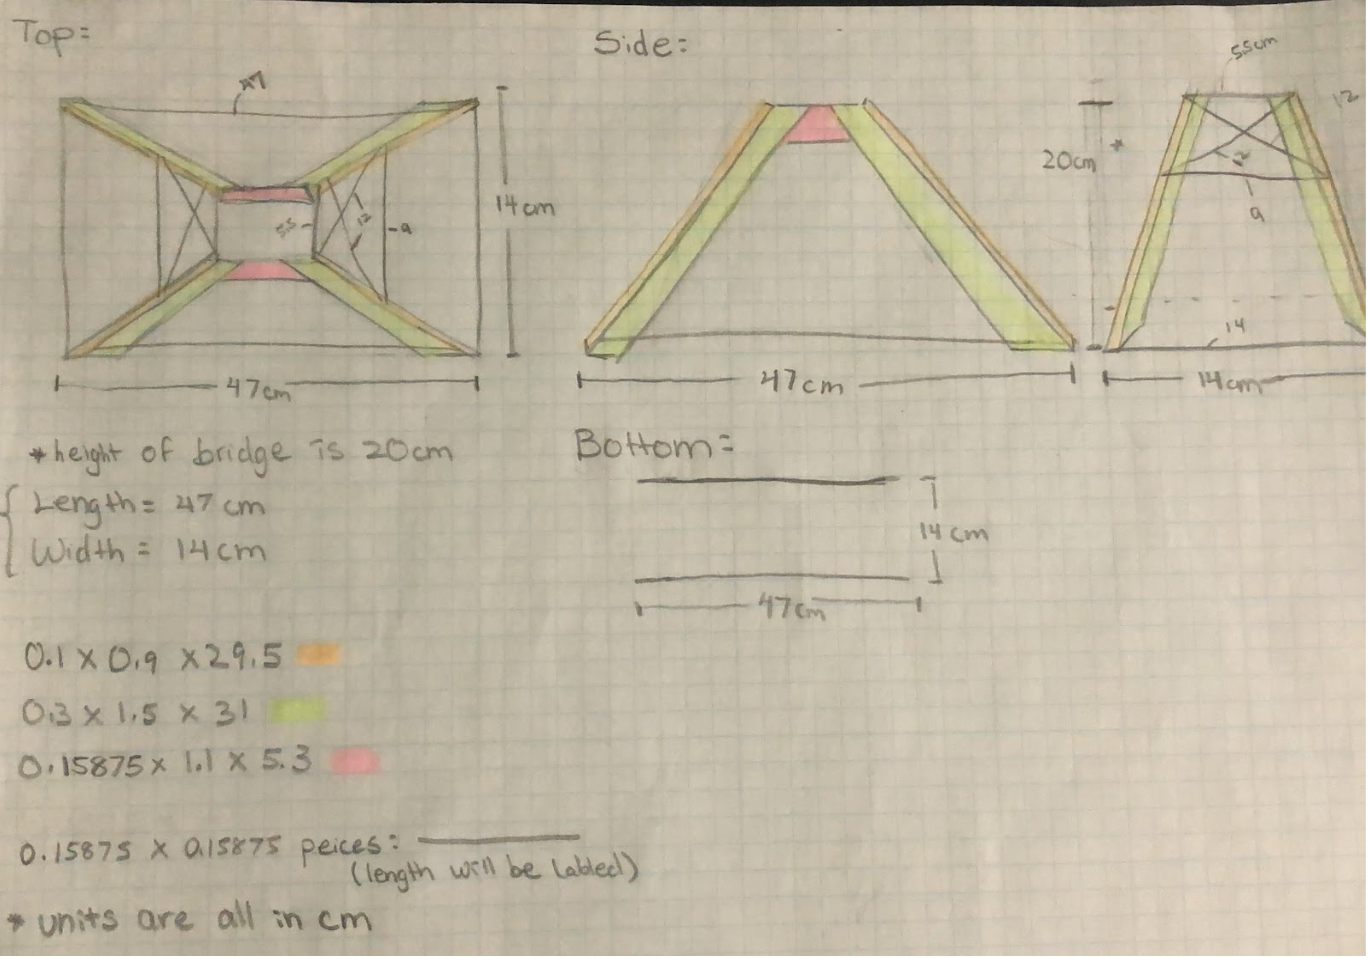 Top:
Side:
47
5.5cm
12
14cm
20cm *
5.5
12
9
12
9
14
47cm
47cm
14cm
* height of bridge is 20cm
Bottom:
Length = 47 cm
Width = 14cm
14cm
47cm
0.1 x 0.9 x 29.5
0.3 x 1.5 x 31
0.15875 x 1.1 x 5.3
0.15875 x 0.15875 peices:
(length will be labled)
* units are all in cm